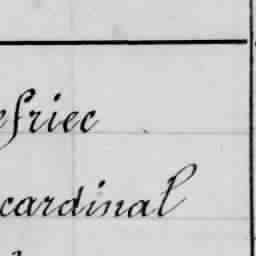 efriec
cardinal